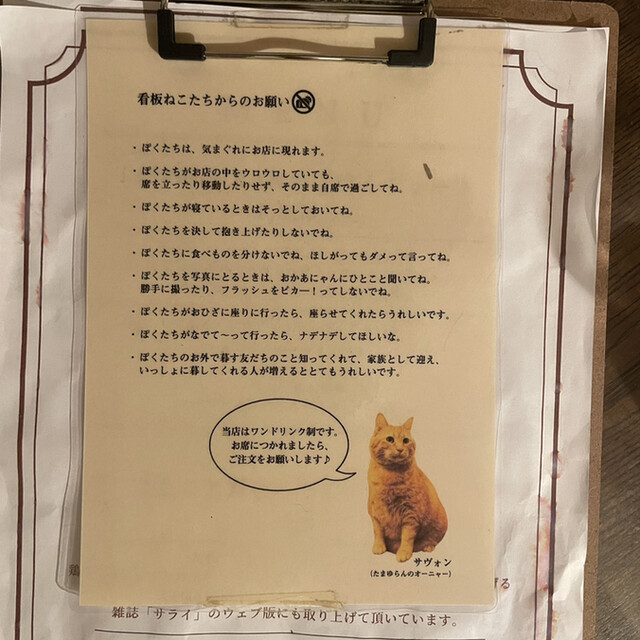 看板ねこたちからのお願い
・ぼくたちは、気まぐれにお店に現れます。
・ぼくたちがお店の中をウロウロしていても、
席を立ったり移動したりせず、そのまま自席で過ごしてね。
・ぼくたちが寝ているときはそっとしておいてね。
・ぼくたちを決して抱き上げたりしないでね。
・ぼくたちに食べものを分けないでね、ほしがってもダメって言ってね。
・ぼくたちを写真にとるときは、おかあにゃんにひとこと聞いてね。
勝手に撮ったり、フラッシュをピカー！ってしないでね。
・ぼくたちがおひざに座りに行ったら、座らせてくれたらうれしいです。
・ぼくたちがなでて〜って行ったら、ナデナデしてほしいな。
・ぼくたちのお外で暮す友だちのこと知ってくれて、家族として迎え、
いっしょに暮してくれる人が増えるととてもうれしいです。
当店はワンドリンク制です。
お席につかれましたら、
ご注文をお願いします♪
サヴォン
(たまゆらんのオーニャー)
げる
雑誌「サライ」のウェブ版にも取り上げて頂いています。